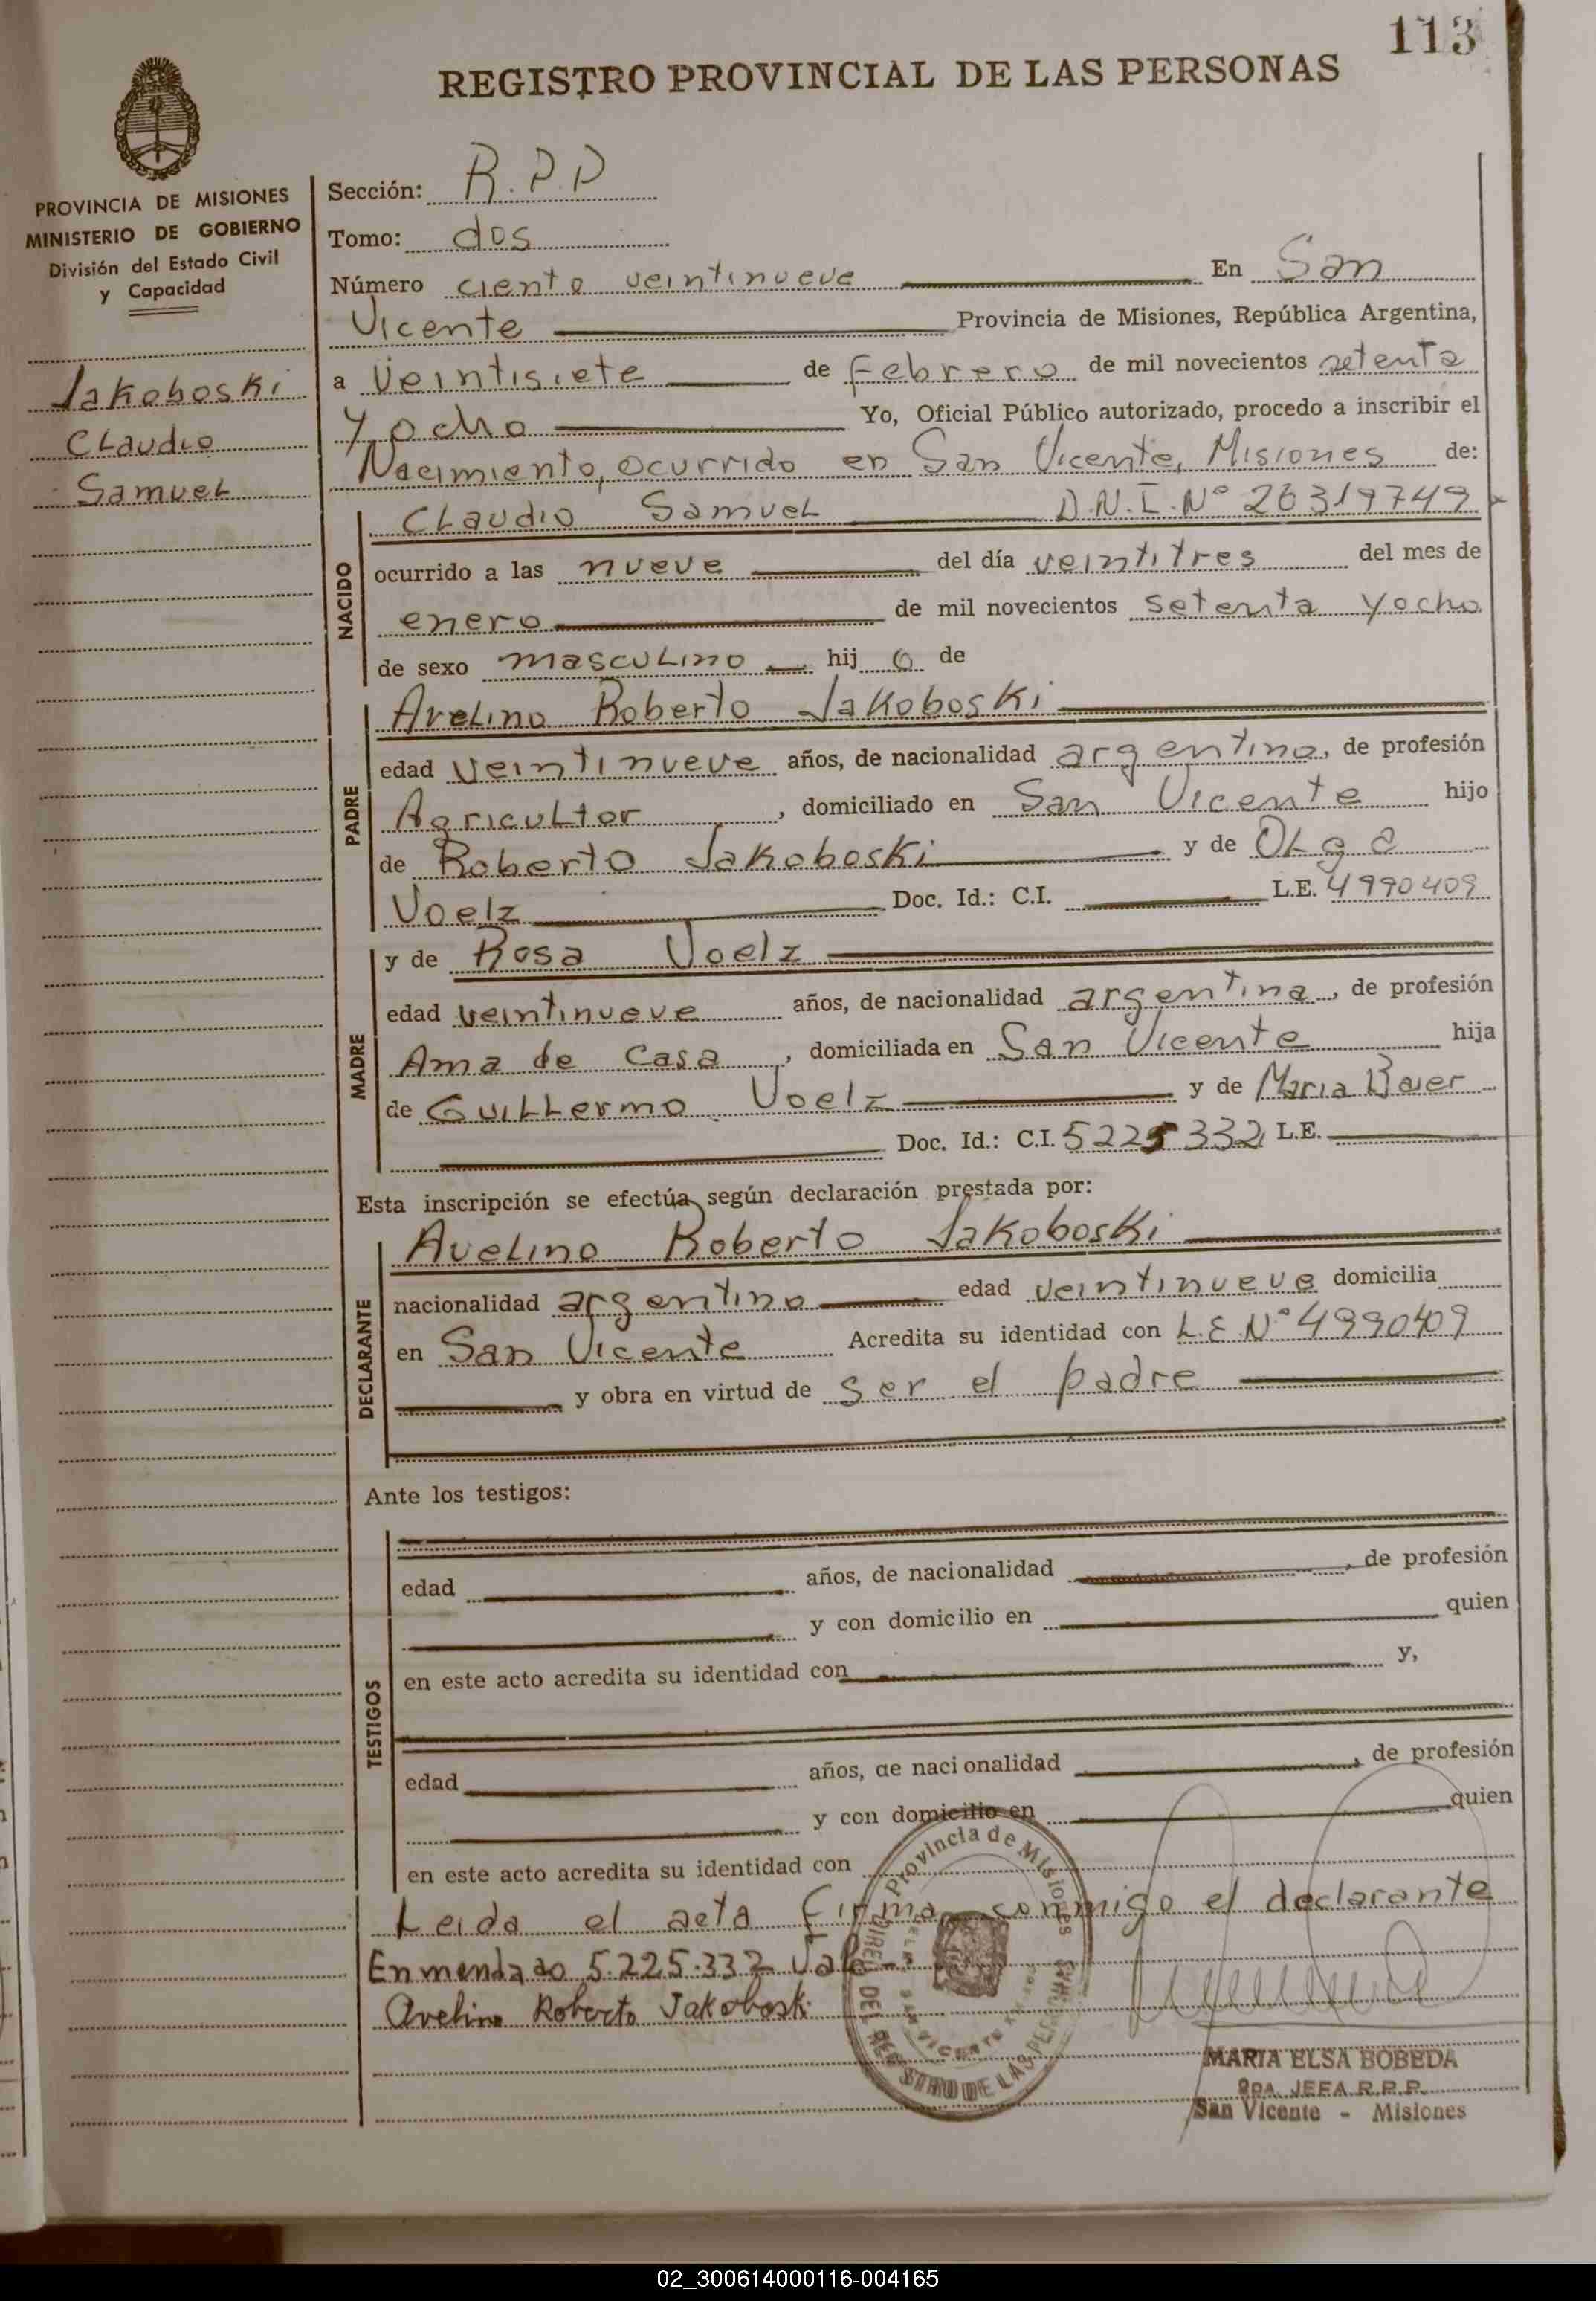 113
REGISTRO PROVINCIAL DE LAS PERSONAS
PROVINCIA DE MISIONES
MINISTERIO DE GOBIERNO
División del Estado Civil
y Capacidad
Jakoboski
Claudio
Samuel
Sección: R.P.P
Tomo: dos
Número ciento veintinueve En San
Vicente Provincia de Misiones, República Argentina,
a veintisiete de Febrero de mil novecientos setenta
y ocho Yo, Oficial Público autorizado, procedo a inscribir el
Nacimiento, ocurrido en San Vicente, Misiones de:
NACIDO
Claudio Samuel D.N.I. Nº 26319749
ocurrido a las nueve del día veintitres del mes de
enero de mil novecientos setenta y ocho
de sexo masculino hijo de
PADRE
Avelino Roberto Jakoboski
edad veintinueve años, de nacionalidad argentino, de profesión
Agricultor, domiciliado en San Vicente hijo
de Roberto Jakoboski y de Olga
Voelz Doc. Id.: C.I. L.E. 4990409
MADRE
y de Rosa Voelz
edad veintinueve años, de nacionalidad argentina, de profesión
Ama de Casa, domiciliada en San Vicente hija
de Guillermo Voelz y de Maria Baier
Doc. Id.: C.I. 5225332 L.E.
Esta inscripción se efectúa según declaración prestada por:
DECLARANTE
Avelino Roberto Jakoboski
nacionalidad argentino edad veintinueve domicilia
en San Vicente Acredita su identidad con L.E. Nº 4990409
y obra en virtud de ser el padre
Ante los testigos:
TESTIGOS
edad años, de nacionalidad , de profesión
y con domicilio en quien
en este acto acredita su identidad con y,
edad años, de nacionalidad , de profesión
y con domicilio en quien
en este acto acredita su identidad con
Leida el acta firma conmigo el declarante
Enmendado 5.225.332 Vale-
Avelino Roberto Jakoboski
Provincia de Misiones
REGISTRO DE LAS PERSONAS
MARIA ELSA BOBEDA
2DA. JEFA R.P.P.
San Vicente - Misiones
02_300614000116-004165